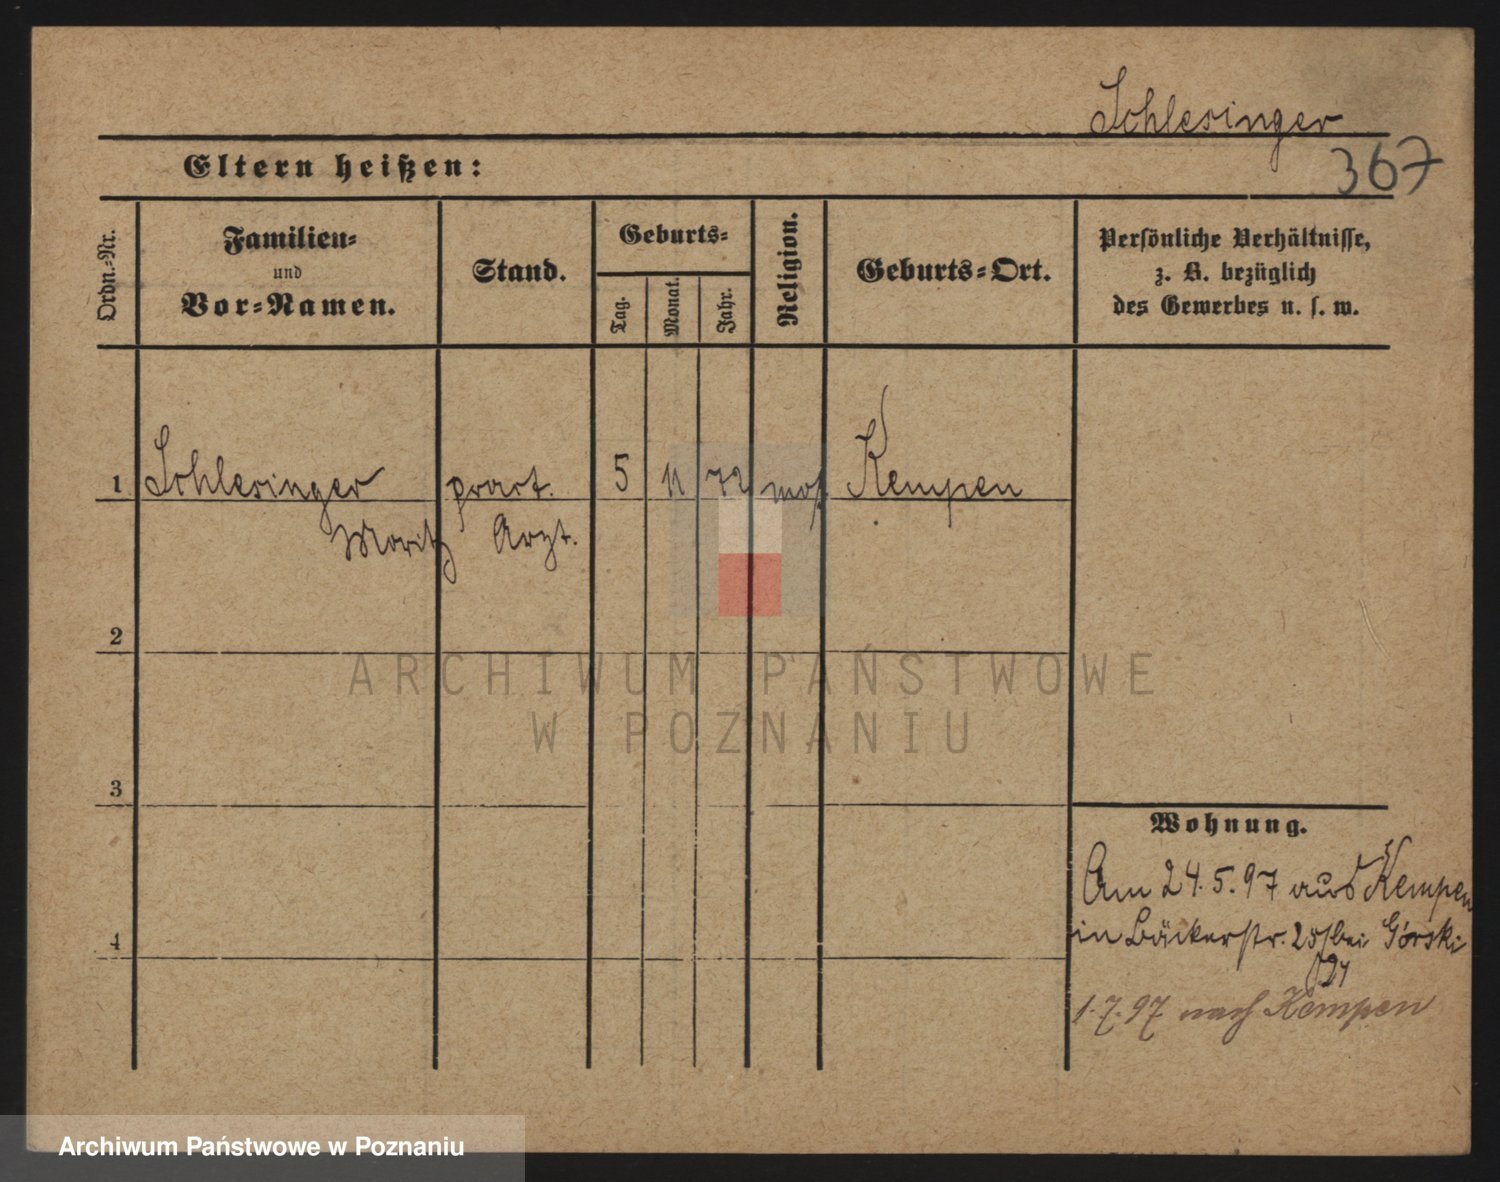 Schlesinger
367
Eltern heißen:
Ordn.-Nr.
Familien-
und
Vor-Namen.
Stand.
Geburts-
Tag.
Monat.
Jahr.
Religion.
Geburts-Ort.
Persönliche Verhältnisse,
z. B. bezüglich
des Gewerbes u. s. w.
1 Schlesinger pract. 5 11 72 mos. Kempen
Moritz Arzt.
2
ARCHIWUM PAŃSTWOWE
W POZNANIU
3
Wohnung.
Am 24.5.97 aus Kempen
in Bäckerstr. 25 bei Górski
4
1.7.97 nach Kempen
Archiwum Państwowe w Poznaniu